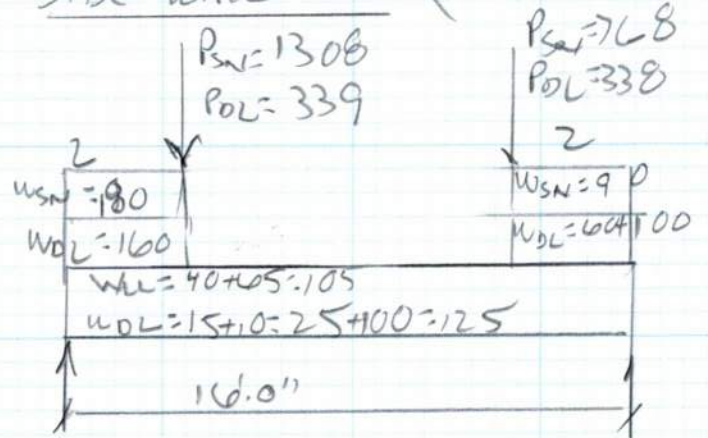 PSN=1308
PDL=339
PSN=768
PDL=338
2
2
WSN=180
WDL=160
WSN=90
WDL=60+100
WLL=40+65=105
WDL=15+10=25+100=125
16'.0"